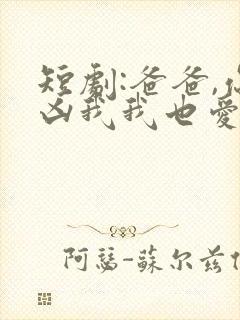 短劇:爸爸,
凶我我也愛
阿瑟-蘇尔兹